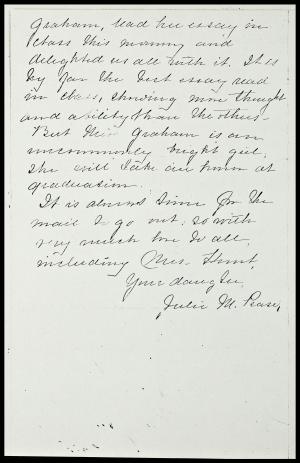 Graham, read her essay in
class this morning and
delighted us all with it. It is
by far the best essay read
in class, showing more thought
and ability than the others.
But Miss Graham is an
uncommonly bright girl,
she will take an honor at
graduation.
It is almost time for the
mail to go out, so with
very much love to all,
including Mrs.
Your daughter,
Julia M. Pease,